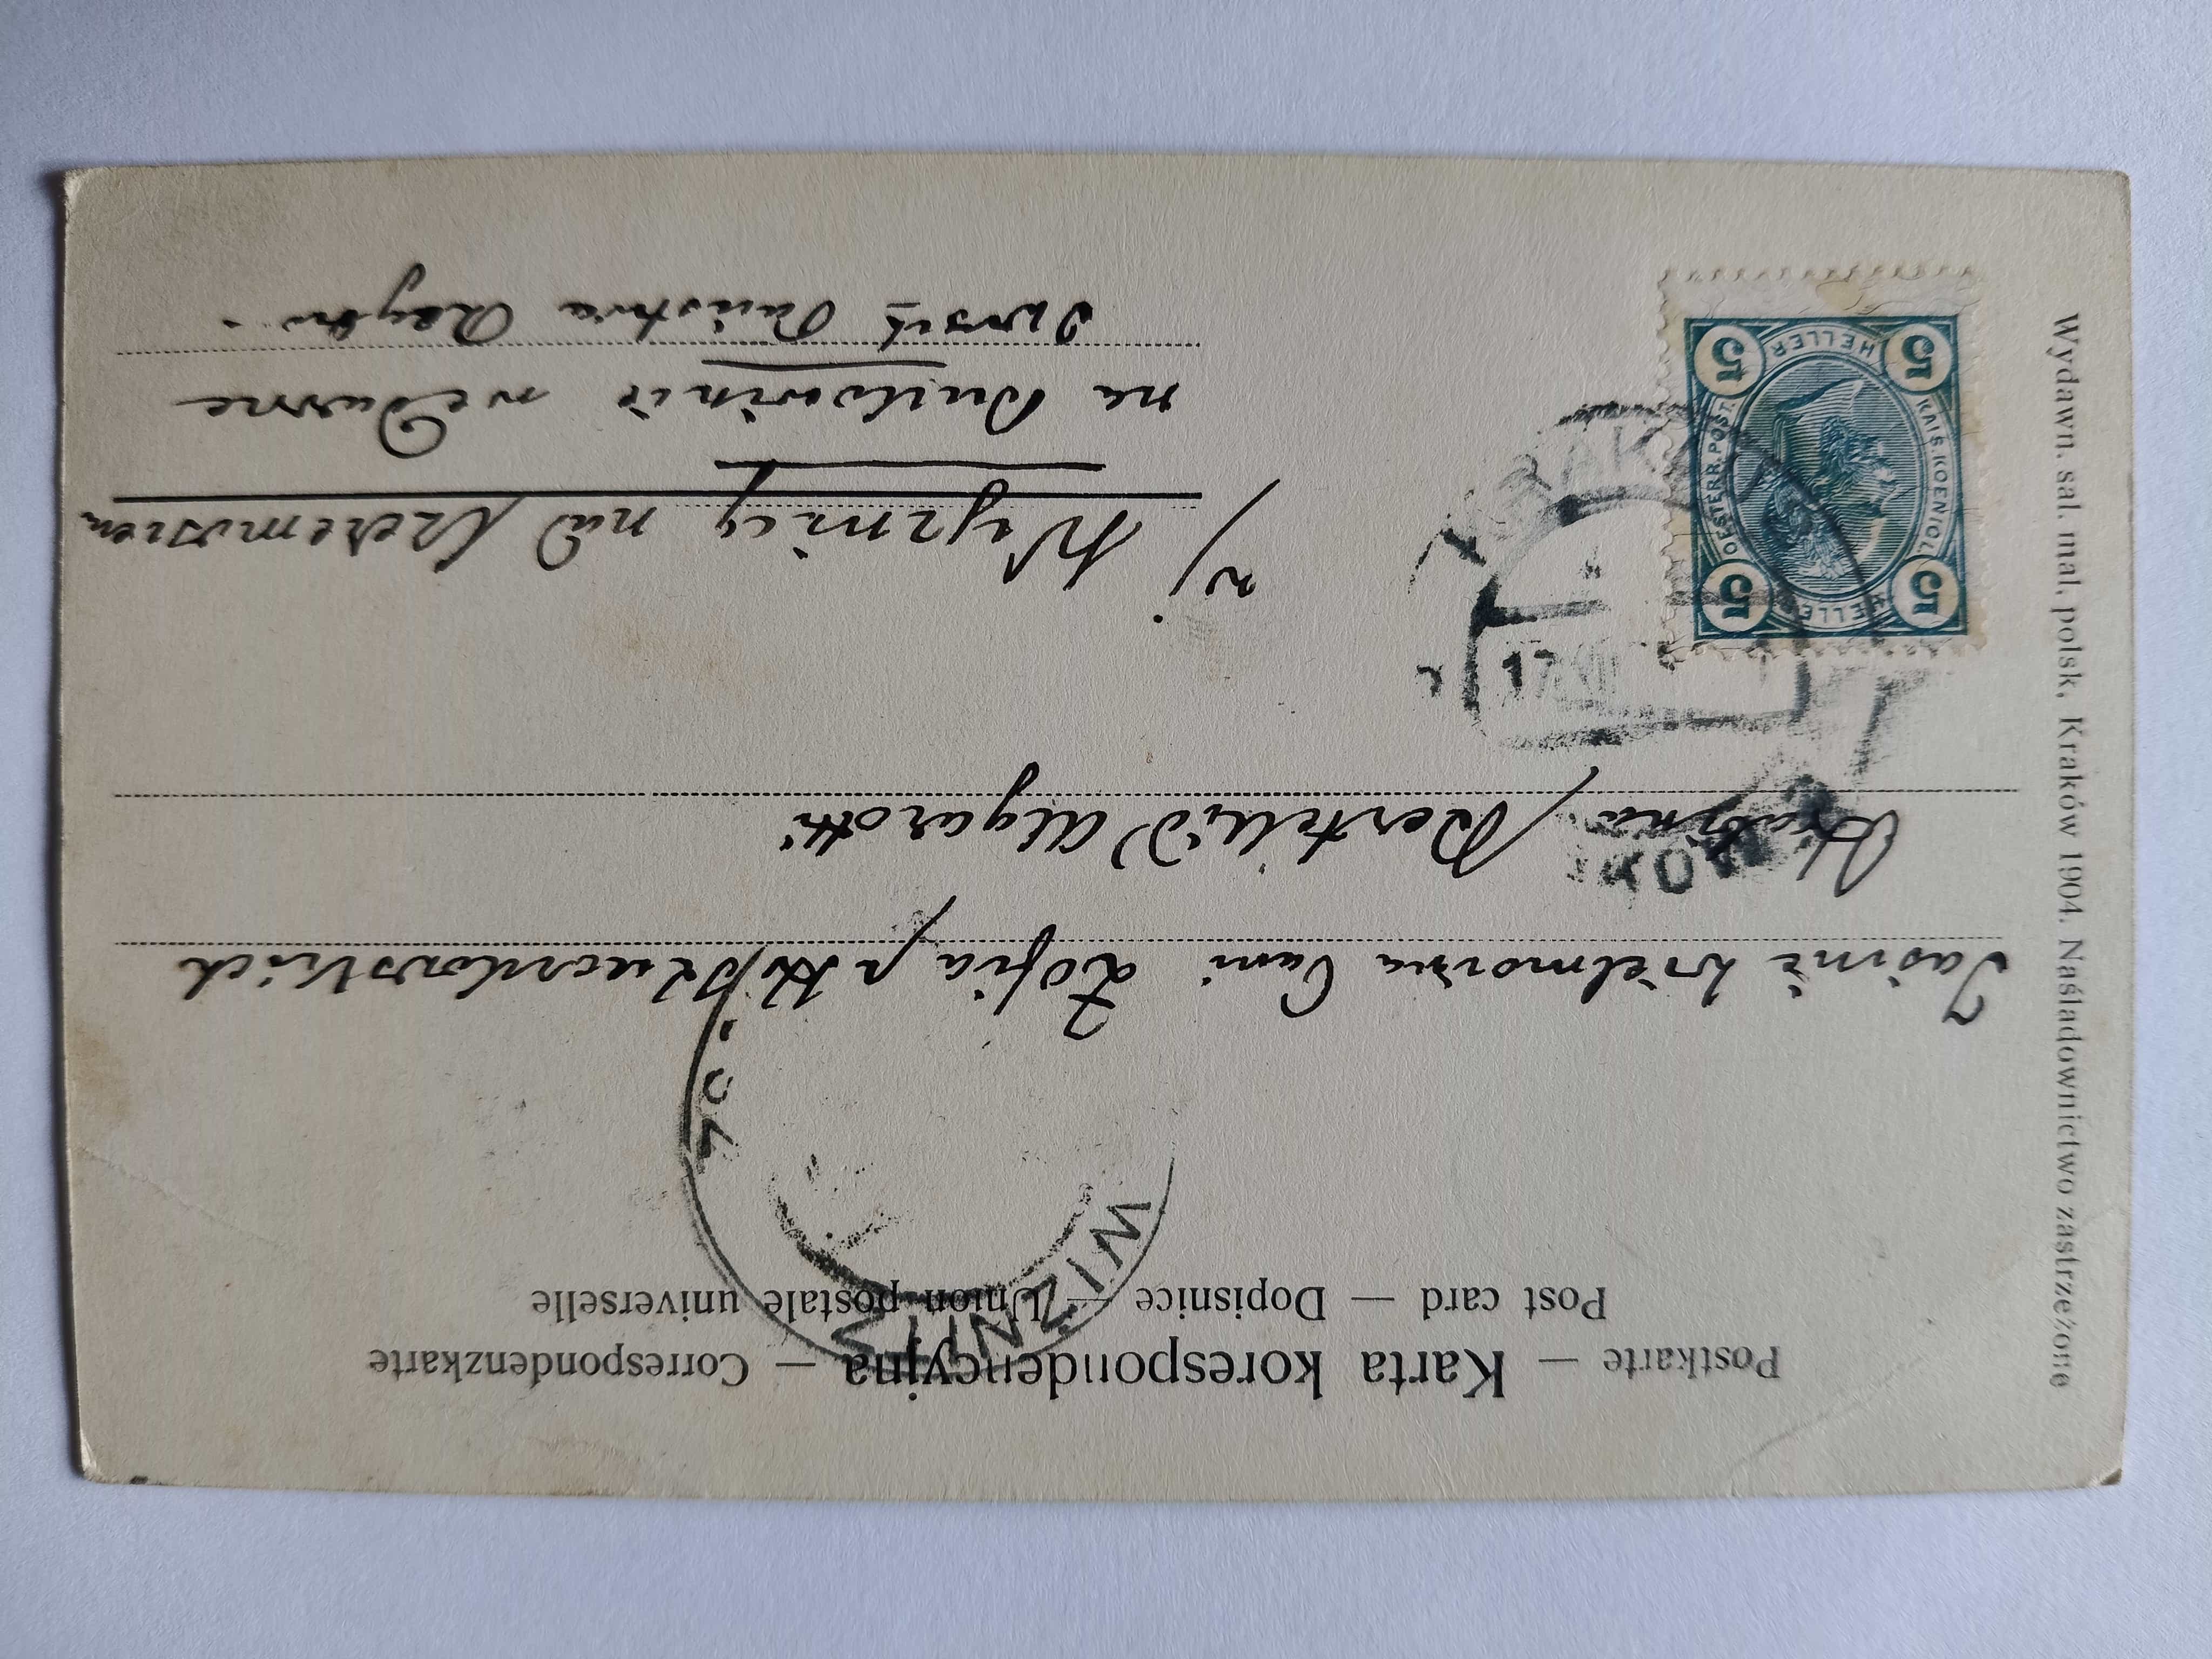 Postkarte — Karta korespondencyjna — Correspondenzkarte
Post card — Dopisnice — Union postale universelle
WIŻNITZ
Jaśnie Wielmożna Pani Zofia
Hrabina Algarotti
w Wyżnicy nad Czeremoszem
na Bukowinie we Dworze
Państwa
KRAKÓW
KRAKÓW
17
5 HELLER 5
KAIS. KOENIGL.
OESTERR. POST.
5 HELLER 5
Wydawn. sal. mal. polsk. Kraków 1904. Naśladownictwo zastrzeżone